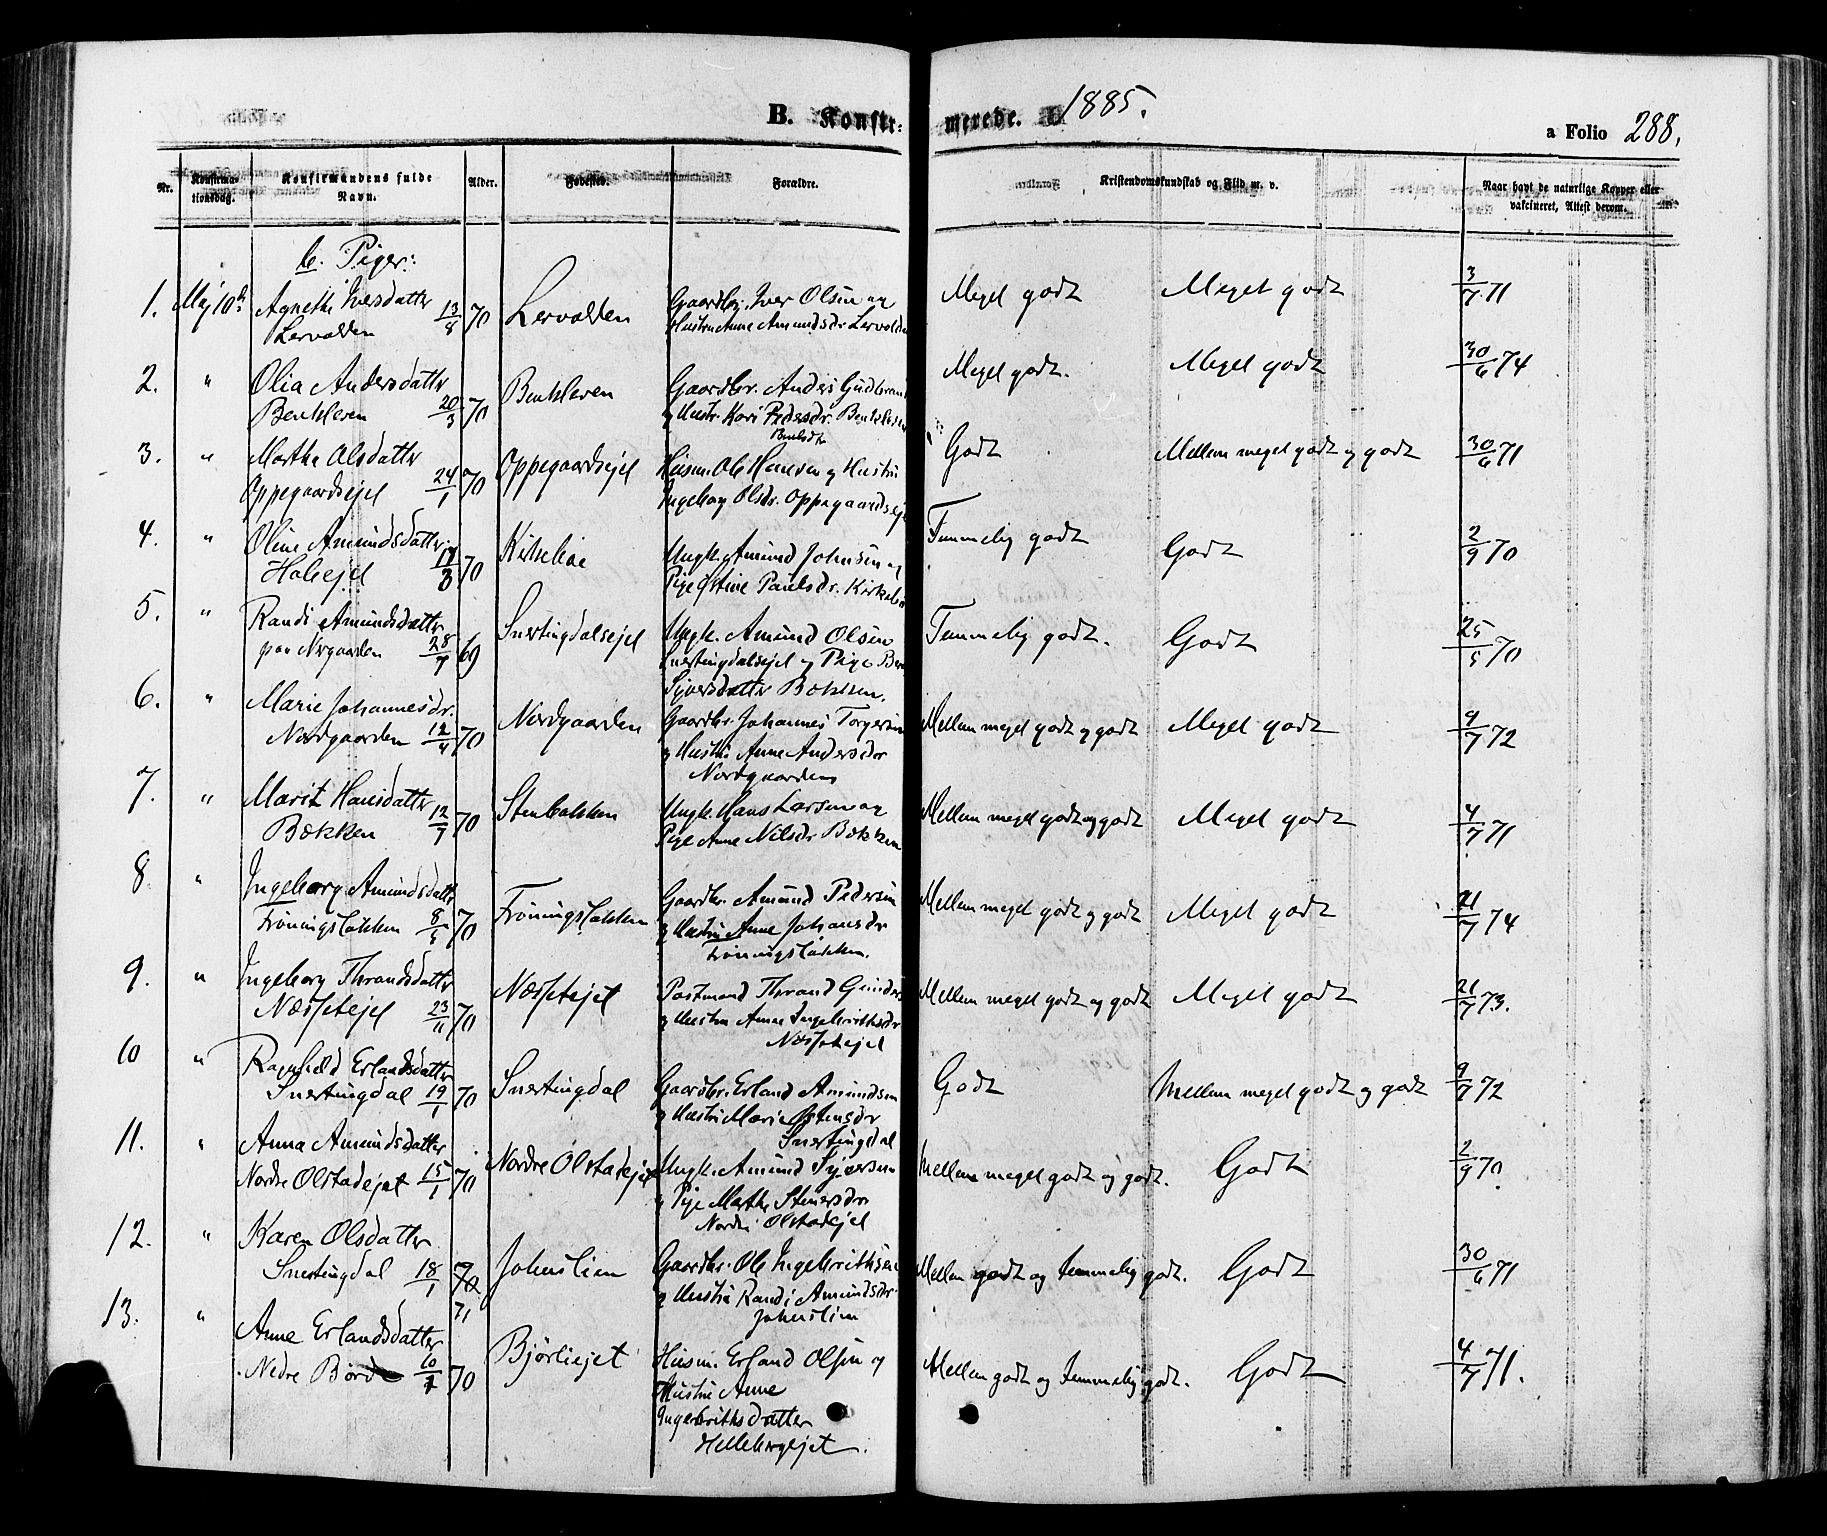 B. Konfir- merede. 1885.
a Folio 288.
Nr. Konfirmationsdag. Konfirmandens fulde Navn. Alder. Fødested. Forældre. Kristendomskundskab og Flid m. v. Naar havt de naturlige Kopper eller vakcineret, Attest derom.
b. Piger:
1. Maj 10de Agnethe Iversdatter 13/8 70 Lervolden Gaardbr. Iver Olsen og Meget godt Meget godt 3/7 71
Lervolden Hustru Anne Amundsdr. Lervolden
2. " Olia Andersdatter Benkleven Gaardbr. Anders Gudbrand Meget godt. Meget godt 30/6 74
Benkleven 20/3 70 og Hustr. Kari Pedersdr. Benkleven
3. " Marthe Olsdatter Oppegaardsejet Husm. Ole Hansen og Hustru Godt Mellem meget godt og godt 30/6 71
Oppegaardsejet 24/1 70 Ingeborg Olsdr. Oppegaardseje
4. " Oline Amundsdatter Ungk. Amund Johnsen og Temmelig godt Godt 2/9 70
17/3 70 Pige Paulsdr.
5. " Randi Amundsdatter Snertingdalsejet Ungk. Amund Olsen Temmelig godt. Godt 25/5 70
paa Norgaarden 28/7 69 Snertingdalsejet og Pige
Sjversdatter Bækken.
6. " Marie Johannesdr. Nordgaarden Gaardbr. Johannes Torgersen Mellem meget godt og godt Meget godt 9/7 72
Nordgaarden 12/4 70 og Hustru Anne Andersdr
Nordgaarden
7. " Marit Hansdatter Stenbakken Ungk. Hans Larsen og Mellem meget godt og godt Meget godt 4/7 71
Bækken 12/7 70 Pige Anne Nilsdr Bækken
8. " Ingeborg Amundsdatter Fröningsløkken Gaardbr. Amund Pedersen Mellem meget godt og godt Meget godt 21/7 74
Fröningsløkken 8/5 70 og Hustru Anne Johansdr
Fröningsløkken.
9. " Ingeborg Thrandsdatter Næssetejet Postmand Thrand Gunders Mellem meget godt og godt Meget godt 21/7 73.
Næssetejet 23/11 70 og Hustru Anne Ingebrithsdr
Næssetejet
10 " Ragnhild Erlandsdatter Snertingdal Gaardbr. Erland Amundsen Godt Mellem meget godt og godt 9/7 72
Snertingdal 19/1 70 og Hustru Marie Østensdr
Snertingdal
11. " Anna Amundsdatter Nordre Olstadejet Ungk. Amund Syversen Mellem meget godt og godt. Godt 2/9 70
Nordre Olstadejet 15/1 70 og Pige Marthe Stenersdr
Nordre Olstadejet
12. " Karen Olsdatter Johnslien Gaardbr. Ole Ingebrithsen Mellem godt og temmelig godt. Godt 30/6 71
Snertingdal 18/1 70 71 og Hustru Randi Amundsdr.
Johnslien
13. " Anne Erlandsdatter Bjørliejet Husm. Erland Olsen og Mellem godt og temmelig godt. Godt 4/7 71.
Nedre 10/1 70 Hustru Anne
Ingebrithsdatter
Hellebergejet.